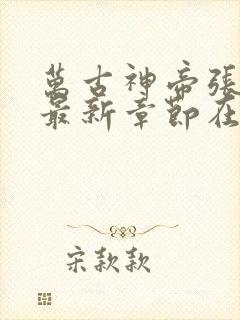 萬古神帝張
最新章節在
宋款款